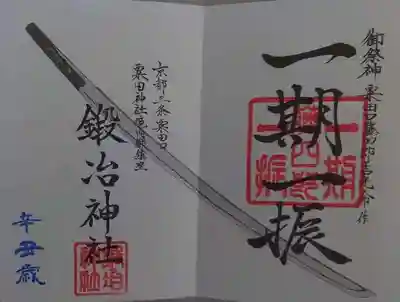 御祭神 粟田口藤四郎吉光命 作
一期一振
一期一振
京都三条粟田口
粟田神社境内鎮座
鍛冶神社
鍛冶神社
辛丑歳